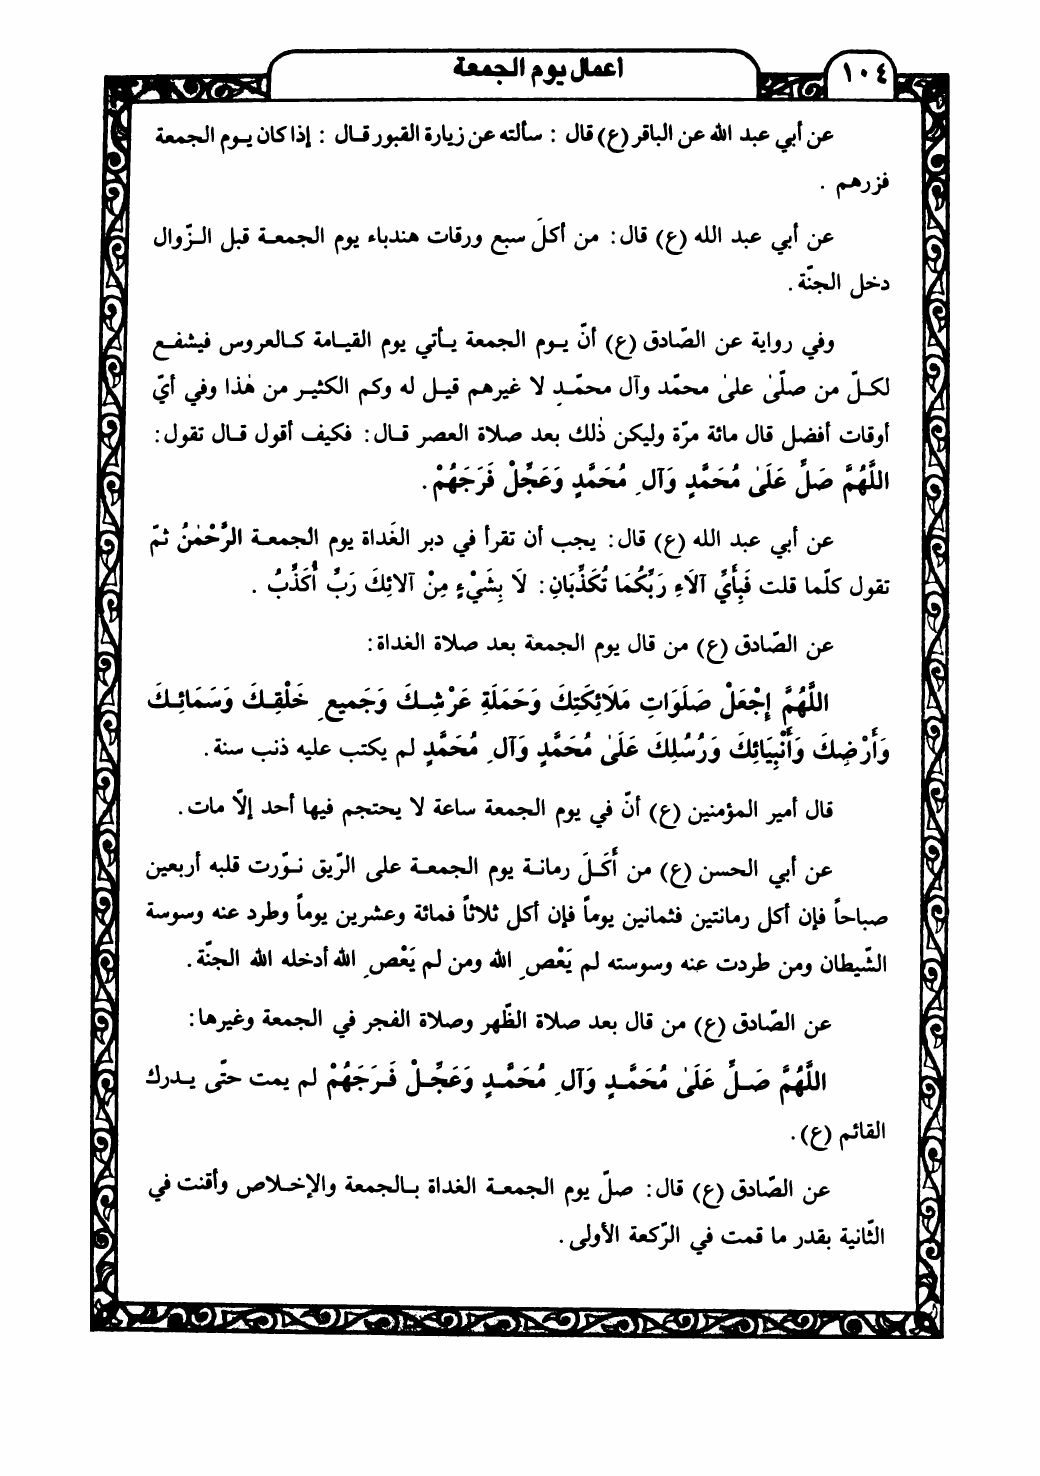 ١٠٤
اعمال يوم الجمعة
عن أبي عبد الله عن الباقر (ع) قال : سألته عن زيارة القبور قال : إذا كان يوم الجمعة
فزرهم .
عن أبي عبد الله (ع) قال: من أكلَ سبع ورقات هندباء يوم الجمعة قبل الزّوال
دخل الجنّة .
وفي رواية عن الصّادق (ع) أنّ يوم الجمعة يأتي يوم القيامة كالعروس فيشفع
لكلّ من صلّىٰ علىٰ محمّد وآل محمّدٍ لا غيرهم قيل له وكم الكثير من هٰذا وفي أيّ
أوقات أفضل قال مائة مرّة وليكن ذٰلك بعد صلاة العصر قال: فكيف أقول قال تقول:
اللَّهُمَّ صَلِّ عَلَىٰ مُحَمَّدٍ وَآلِ مُحَمَّدٍ وَعَجِّلْ فَرَجَهُمْ .
عن أبي عبد الله (ع) قال: يجب أن تقرأ في دبر الغَداة يوم الجمعة الرَّحْمٰنُ ثمّ
تقول كلّما قلت فَبِأَيِّ آلَاءِ رَبِّكُمَا تُكَذِّبَانِ: لَا بِشَيْءٍ مِنْ آلائِكَ رَبِّ أُكَذِّبُ .
عن الصّادق (ع) من قال يوم الجمعة بعد صلاة الغداة:
اللَّهُمَّ إِجْعَلْ صَلَوَاتِ مَلَائِكَتِكَ وَحَمَلَةِ عَرْشِكَ وَجَمِيعِ خَلْقِكَ وَسَمَائِكَ
وَأَرْضِكَ وَأَنْبِيَائِكَ وَرُسُلِكَ عَلَىٰ مُحَمَّدٍ وَآلِ مُحَمَّدٍ لم يكتب عليه ذنب سنة .
قال أمير المؤمنين (ع) أنّ في يوم الجمعة ساعة لا يحتجم فيها أحد إلّا مات .
عن أبي الحسن (ع) من أَكَلَ رمانة يوم الجمعة على الرّيق نوّرت قلبه أربعين
صباحاً فإن أكل رمانتين فثمانين يوماً فإن أكل ثلاثاً فمائة وعشرين يوماً وطرد عنه وسوسة
الشّيطان ومن طردت عنه وسوسته لم يَعْصِ الله ومن لم يَعْصِ الله أدخله الله الجنّة .
عن الصّادق (ع) من قال بعد صلاة الظّهر وصلاة الفجر في الجمعة وغيرها:
اللَّهُمَّ صَلِّ عَلَىٰ مُحَمَّدٍ وَآلِ مُحَمَّدٍ وَعَجِّلْ فَرَجَهُمْ لم يمت حتّى يدرك
القائم (ع) .
عن الصّادق (ع) قال: صلّ يوم الجمعة الغداة بالجمعة والإخلاص وأقنت في
الثّانية بقدر ما قمت في الرّكعة الأولى .